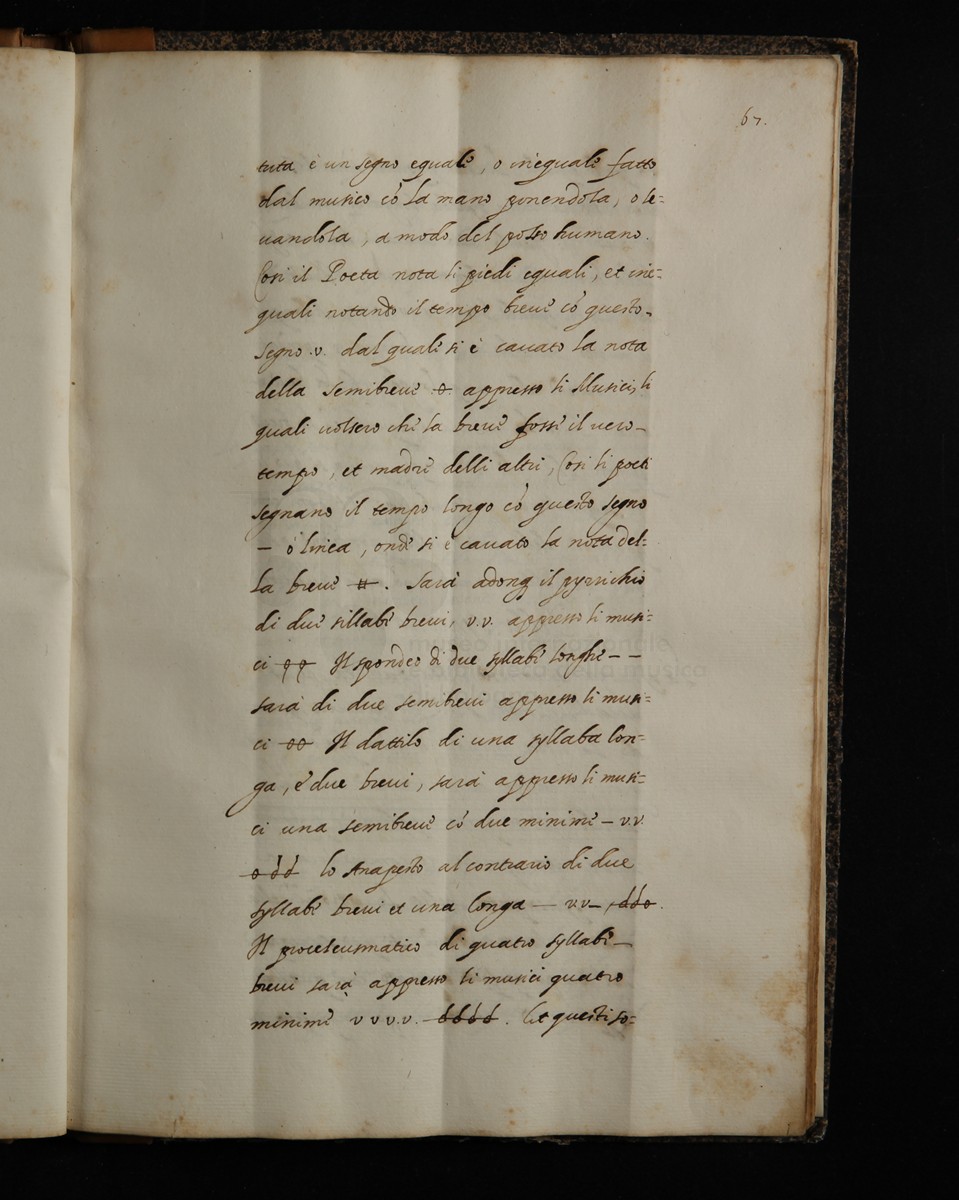 67.
tuta è un segno eguale, o ineguale fatto
dal musico cō la mano ponendola, o le=
uandola, a modo del polso humano.
Cosi il Poeta nota li piedi eguali, et ine=
guali notando il tempo breue cō questo
segno .v. dal quale si è cauato la nota
della semibreue appresso li Musici, li
quali uolsero che la breue fosse il uero
tempo, et madre delli altri, Cosi li poeti
segnano il tempo longo cō questo segno
— ò linea, onde si è cauato la nota del=
la breue . Sarà adonq il pyrrichio
di due sillabe breui, v.v. appresso li musi=
ci Il spondeo di due syllabe longhe – –
sarà di due semibreui appresso li musi=
ci Il dattilo di una syllaba lon=
ga, è due breui, sarà appresso li musi=
ci una semibreue cō due minime – v.v.
lo Anapesto al contrario di due
syllabe breui et una longa — v v –
Il proceleusmatico di quatro syllabe
breui sarà appresso li musici quatro
minime v v v.v. . Et questi so=